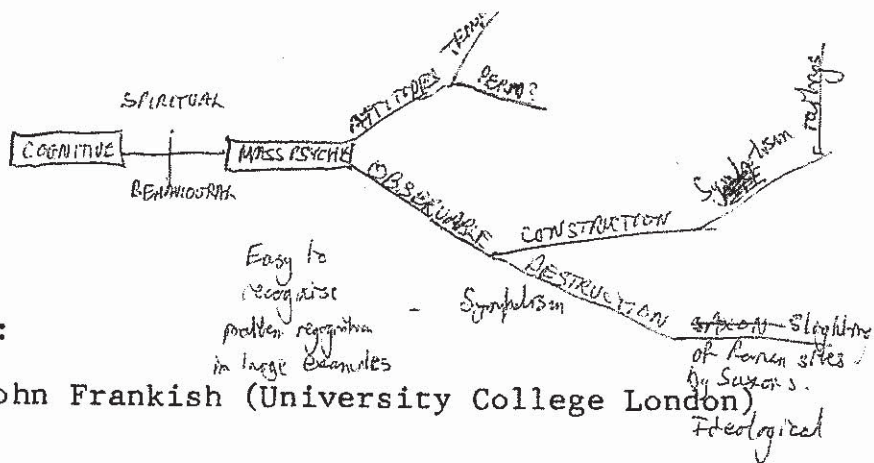 SPIRITUAL
COGNITIVE
MASS PSYCHE
BEHAVIOURAL
ATTITUDES
PERM?
OBSERVABLE
CONSTRUCTION
Symbolism
DESTRUCTION
Easy to
recognise
pattern recognition
in large examples
- Symbolism
Slighting
of Roman sites
by Saxons.
Ideological
:
ohn Frankish (University College London)